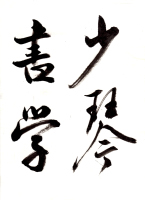 少琴
書学